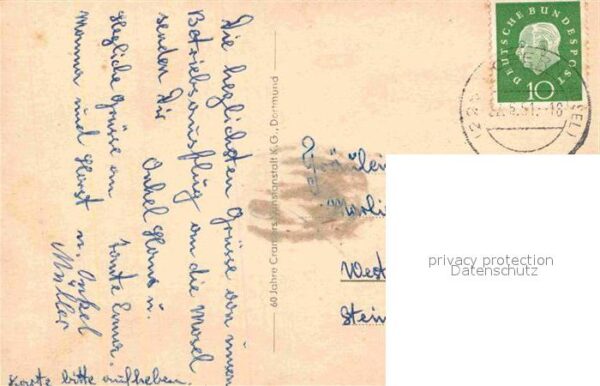 Die herzlichsten Grüsse von unserem
Betriebsausflug an die Mosel
senden Dir Onkel Hans u.
Tante Erna.
Herzliche Grüsse an
Mamma und Horst u. Onkel
Müller
Karte bitte aufheben.
60 Jahre Cramers Kunstanstalt K.G., Dortmund
DEUTSCHE BUNDESPOST
10
(22
-18
SEL)
Fräulein
West
Stein
privacy protection
Datenschutz